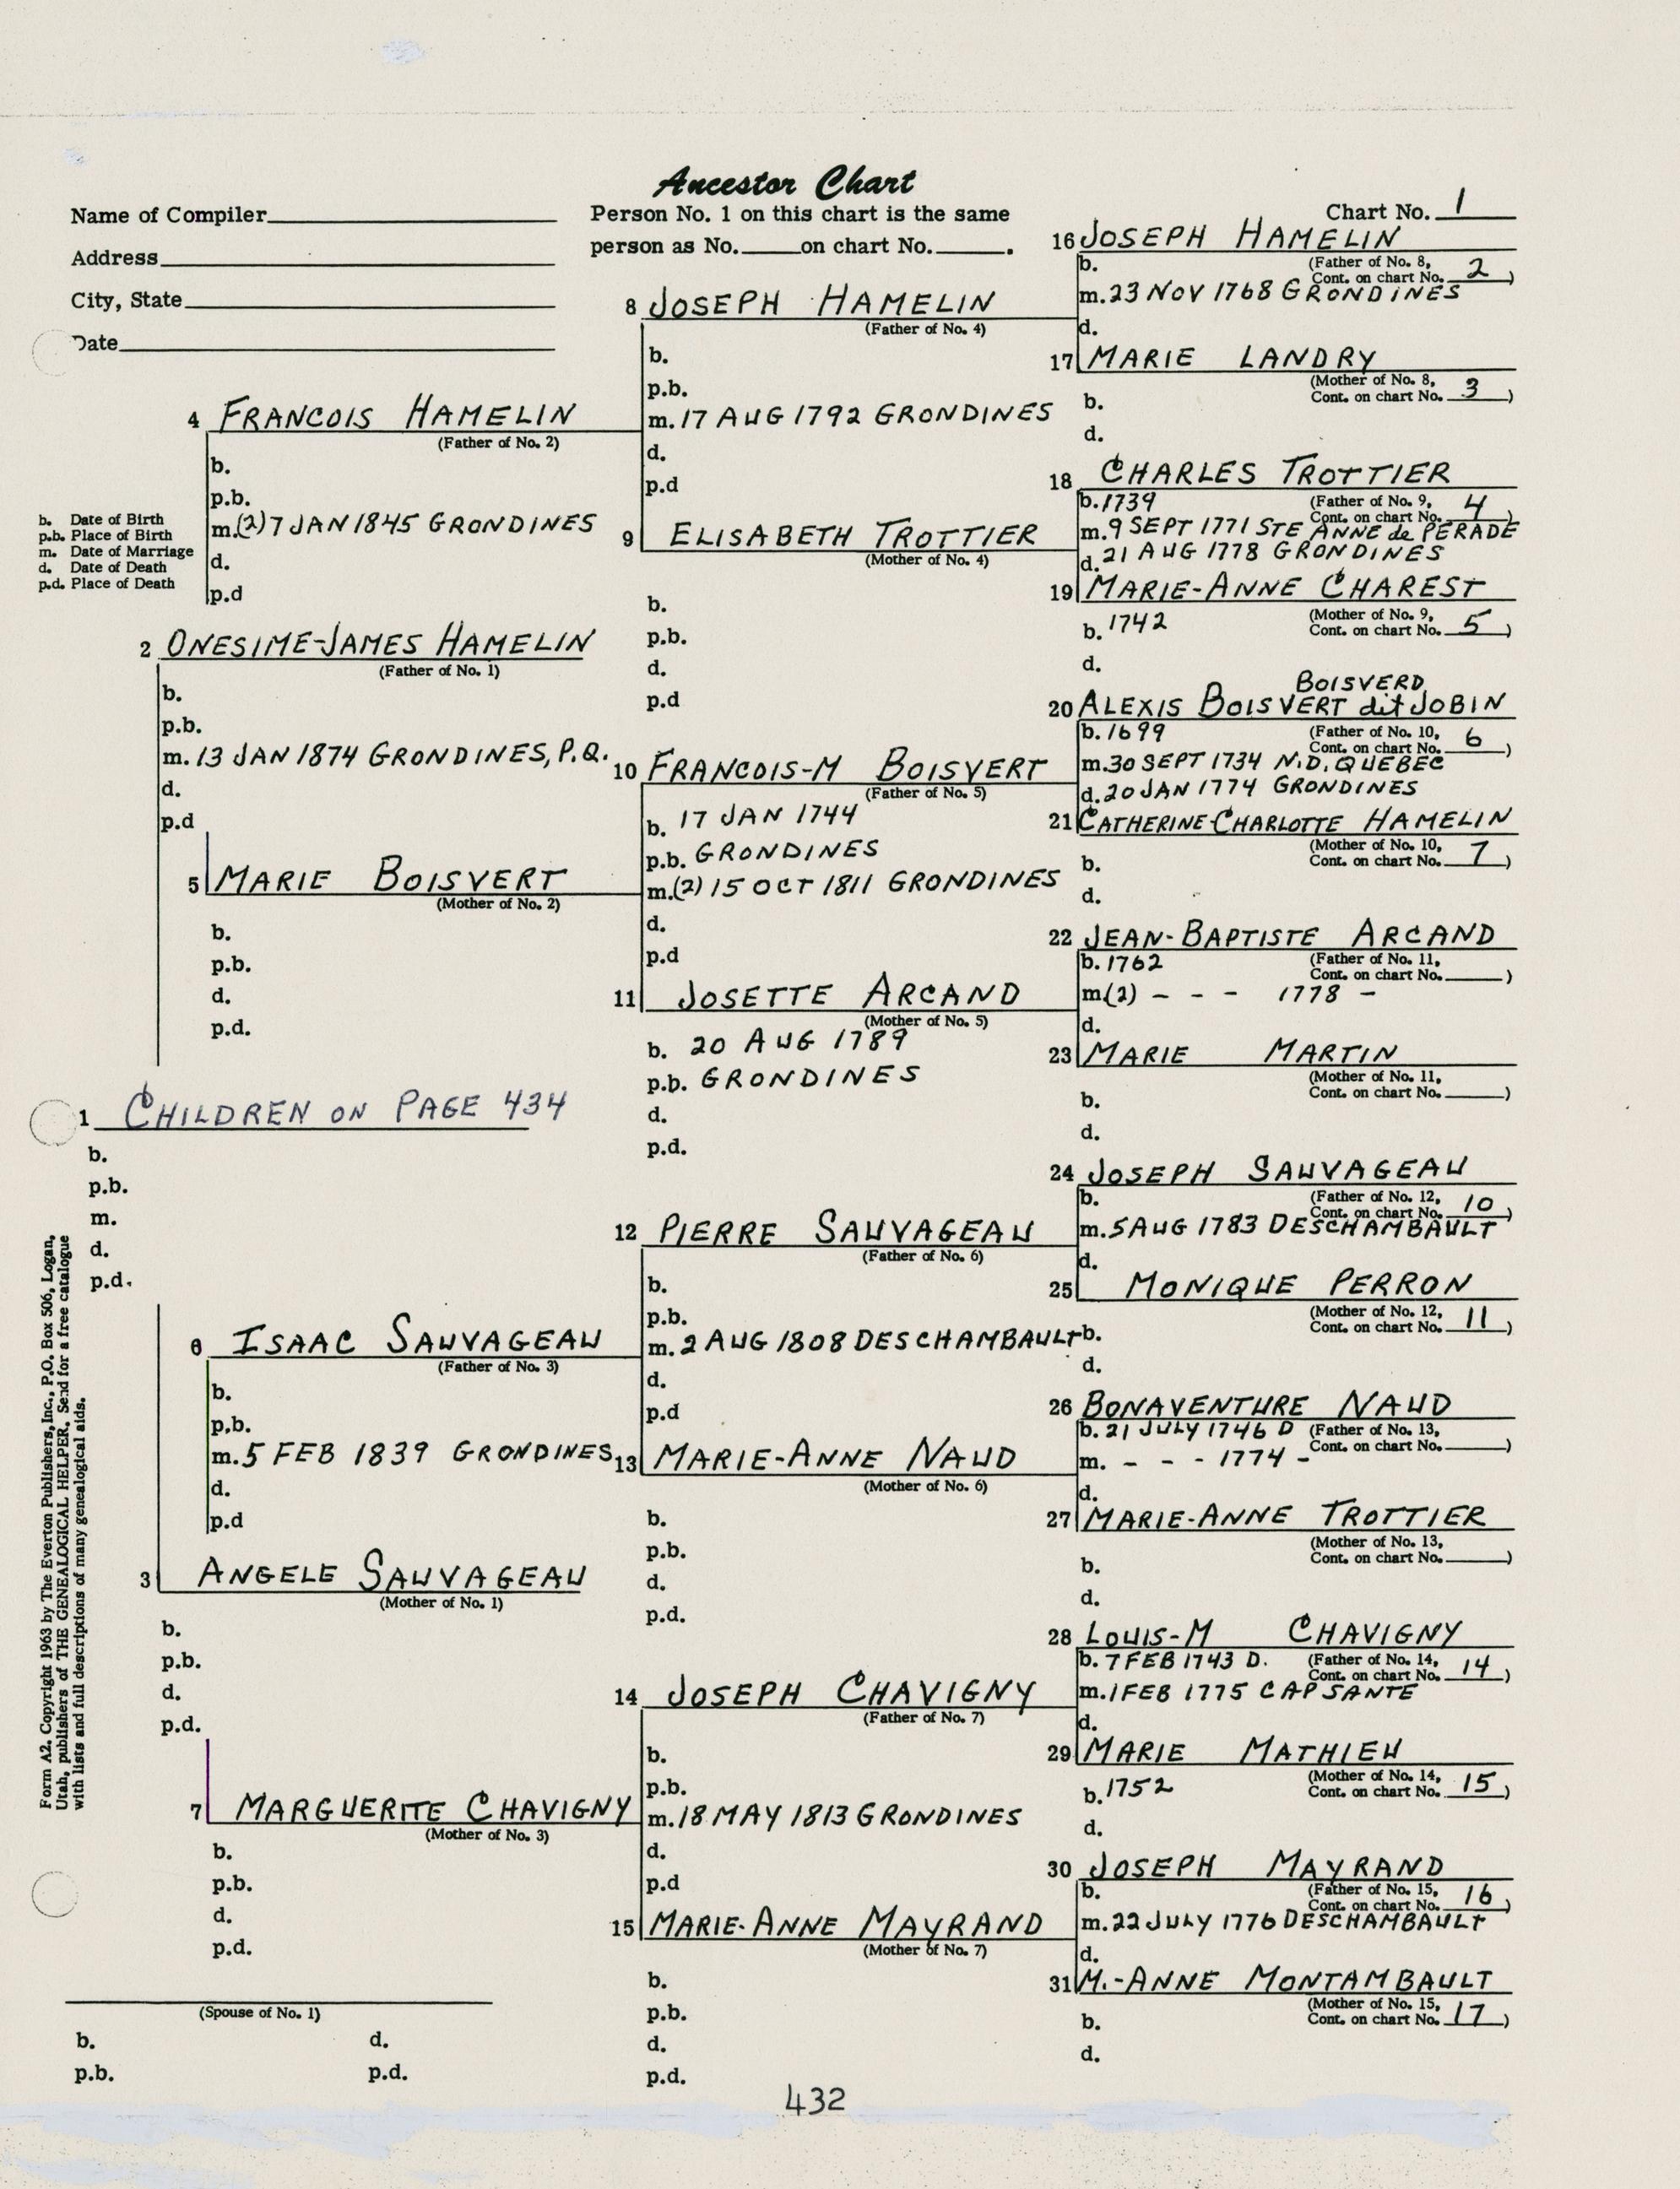 Ancestor Chart
Name of Compiler
Address
City, State
Date
Person No. 1 on this chart is the same
person as No. on chart No. .
Chart No. 1
b. Date of Birth
p.b. Place of Birth
m. Date of Marriage
d. Date of Death
p.d. Place of Death
1 CHILDREN ON PAGE 434
b.
p.b.
m.
d.
p.d.
2 ONESIME-JAMES HAMELIN
(Father of No. 1)
b.
p.b.
m. 13 JAN 1874 GRONDINES, P.Q.
d.
p.d
3 ANGELE SAUVAGEAU
(Mother of No. 1)
b.
p.b.
d.
p.d.
4 FRANCOIS HAMELIN
(Father of No. 2)
b.
p.b.
m.(2) 7 JAN 1845 GRONDINES
d.
p.d
5 MARIE BOISVERT
(Mother of No. 2)
b.
p.b.
d.
p.d.
6 ISAAC SAUVAGEAU
(Father of No. 3)
b.
p.b.
m. 5 FEB 1839 GRONDINES
d.
p.d
7 MARGUERITE CHAVIGNY
(Mother of No. 3)
b.
p.b.
d.
p.d.
8 JOSEPH HAMELIN
(Father of No. 4)
b.
p.b.
m. 17 AUG 1792 GRONDINES
d.
p.d
9 ELISABETH TROTTIER
(Mother of No. 4)
b.
p.b.
d.
p.d
10 FRANCOIS-M BOISVERT
(Father of No. 5)
b. 17 JAN 1744
p.b. GRONDINES
m.(2) 15 OCT 1811 GRONDINES
d.
p.d
11 JOSETTE ARCAND
(Mother of No. 5)
b. 20 AUG 1789
p.b. GRONDINES
d.
p.d.
12 PIERRE SAUVAGEAU
(Father of No. 6)
b.
p.b.
m. 2 AUG 1808 DESCHAMBAULT
d.
p.d
13 MARIE-ANNE NAUD
(Mother of No. 6)
b.
p.b.
d.
p.d.
14 JOSEPH CHAVIGNY
(Father of No. 7)
b.
p.b.
m. 18 MAY 1813 GRONDINES
d.
p.d
15 MARIE-ANNE MAYRAND
(Mother of No. 7)
b.
p.b.
d.
p.d.
16 JOSEPH HAMELIN
b. (Father of No. 8,
Cont. on chart No. 2)
m. 23 NOV 1768 GRONDINES
d.
17 MARIE LANDRY
(Mother of No. 8,
Cont. on chart No. 3)
b.
d.
18 CHARLES TROTTIER
b. 1739 (Father of No. 9,
Cont. on chart No. 4)
m. 9 SEPT 1771 STE ANNE de PERADE
d. 21 AUG 1778 GRONDINES
19 MARIE-ANNE CHAREST
(Mother of No. 9,
b. 1742 Cont. on chart No. 5)
d.
BOISVERD
20 ALEXIS BOISVERT dit JOBIN
b. 1699 (Father of No. 10,
Cont. on chart No. 6)
m. 30 SEPT 1734 N.D. QUEBEC
d. 20 JAN 1774 GRONDINES
21 CATHERINE-CHARLOTTE HAMELIN
(Mother of No. 10,
b. Cont. on chart No. 7)
d.
22 JEAN-BAPTISTE ARCAND
b. 1762 (Father of No. 11,
Cont. on chart No. )
m(2) - - - 1778 -
d.
23 MARIE MARTIN
(Mother of No. 11,
Cont. on chart No. )
b.
d.
24 JOSEPH SAUVAGEAU
b. (Father of No. 12,
Cont. on chart No. 10)
m. 5 AUG 1783 DESCHAMBAULT
d.
25 MONIQUE PERRON
(Mother of No. 12,
b. Cont. on chart No. 11)
d.
26 BONAVENTURE NAUD
b. 21 JULY 1746 D (Father of No. 13,
Cont. on chart No. )
m. - - - 1774 -
d.
27 MARIE-ANNE TROTTIER
(Mother of No. 13,
Cont. on chart No. )
b.
d.
28 LOUIS-M CHAVIGNY
b. 7 FEB 1743 D. (Father of No. 14,
Cont. on chart No. 14)
m. 1 FEB 1775 CAP SANTE
d.
29 MARIE MATHIEU
(Mother of No. 14,
b. 1752 Cont. on chart No. 15)
d.
30 JOSEPH MAYRAND
b. (Father of No. 15,
Cont. on chart No. 16)
m. 22 JULY 1776 DESCHAMBAULT
d.
31 M.-ANNE MONTAMBAULT
(Mother of No. 15,
Cont. on chart No. 17)
b.
d.
(Spouse of No. 1)
b. d.
p.b. p.d.
Form A2. Copyright 1963 by The Everton Publishers, Inc., P.O. Box 506, Logan,
Utah, publishers of THE GENEALOGICAL HELPER. Send for a free catalogue
with lists and full descriptions of many genealogical aids.
432